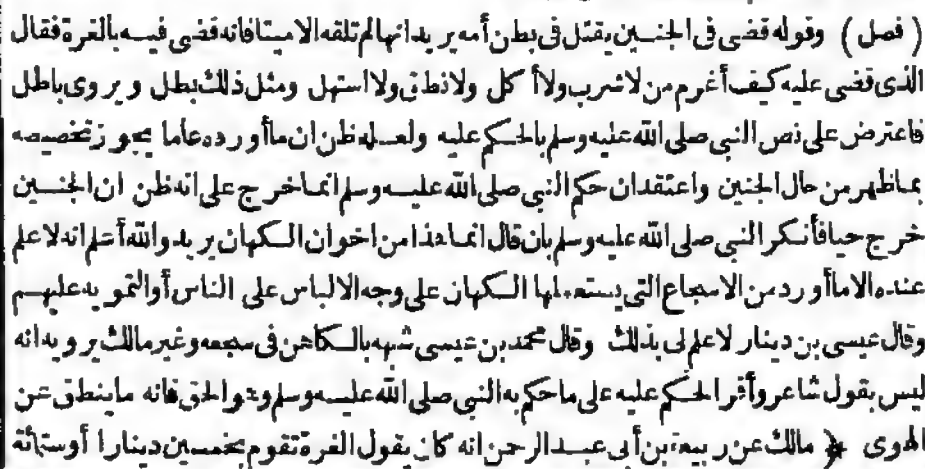 ( فصل ) وقوله قضى في الجنين يقتل في بطن أمه يريد انها لم تلقه الا ميتا فانه قضى فيه بالغرة فقال
الذى قضى عليه كيف أغرم من لا شرب ولا أكل ولا نطق ولا استهل ومثل ذلك بطل ويروى باطل
فاعترض على نص النبى صلى الله عليه وسلم بالحكم عليه ولعله ظن ان ما أورده عاما يجوز تخصيصه
بما ظهر من حال الجنين واعتقد ان حكم النبى صلى الله عليه وسلم انما خرج على انه ظن ان الجنين
خرج حيا فأنكر النبى صلى الله عليه وسلم بان قال انما هذا من اخوان الكهان يريد والله أعلم انه لا علم
عنده الا ما أورد من الاسجاع التى يستعملها الكهان على وجه الالباس على الناس أو التمويه عليهم
وقال عيسى بن دينار لا علم لى بذلك وقال محمد بن عيسى شبهه بالكاهن فى سجعه وغير مالك يرويه انه
ليس بقول شاعر وأقر الحكم عليه على ما حكم به النبى صلى الله عليه وسلم وهو الحق فانه ما ينطق عن
الهوى ﴿ مالك عن ربيعة بن أبى عبد الرحمن انه كان يقول الغرة تقوم بخمسين دينارا أو ستمائة